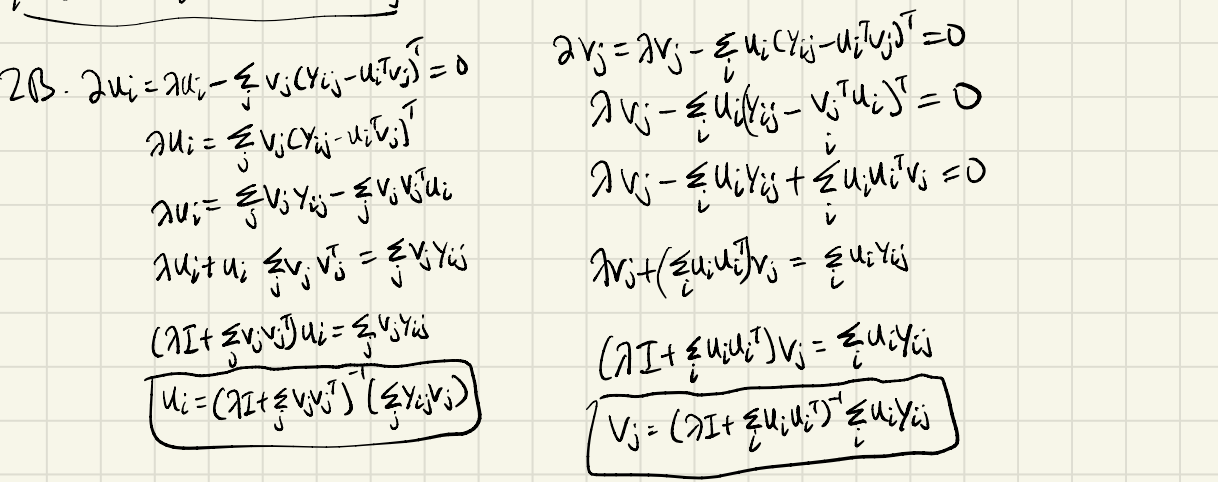 2B. ∂u_i = λu_i - Σ_j v_j(y_ij - u_i^T v_j)^T = 0
λu_i = Σ_j v_j(y_ij - u_i^T v_j)^T
λu_i = Σ_j v_j y_ij - Σ_j v_j v_j^T u_i
λu_i + u_i Σ_j v_j v_j^T = Σ_j v_j y_ij
(λI + Σ_j v_j v_j^T)u_i = Σ_j v_j y_ij
u_i = (λI + Σ_j v_j v_j^T)^-1 (Σ_j y_ij v_j)
∂v_j = λv_j - Σ_i u_i(y_ij - u_i^T v_j)^T = 0
λv_j - Σ_i u_i(y_ij - v_j^T u_i)^T = 0
λv_j - Σ_i u_i y_ij + Σ_i u_i u_i^T v_j = 0
λv_j + (Σ_i u_i u_i^T)v_j = Σ_i u_i y_ij
(λI + Σ_i u_i u_i^T)v_j = Σ_i u_i y_ij
v_j = (λI + Σ_i u_i u_i^T)^-1 Σ_i u_i y_ij